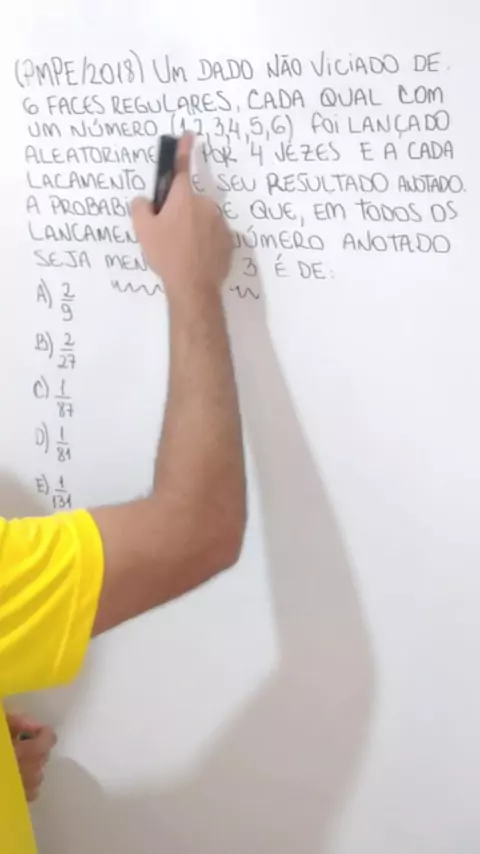 (PMPE/2018) UM DADO NÃO VICIADO DE
6 FACES REGULARES, CADA QUAL COM
UM NÚMERO (1,2,3,4,5,6) FOI LANÇADO
ALEATORIAME POR 4 VEZES E A CADA
LACAMENTO E SEU RESULTADO ANOTADO.
A PROBABI DE QUE, EM TODOS OS
LANCAMEN NÚMERO ANOTADO
SEJA MEN 3 É DE:
A) 2/9
B) 2/27
C) 1/87
D) 1/81
E) 1/131